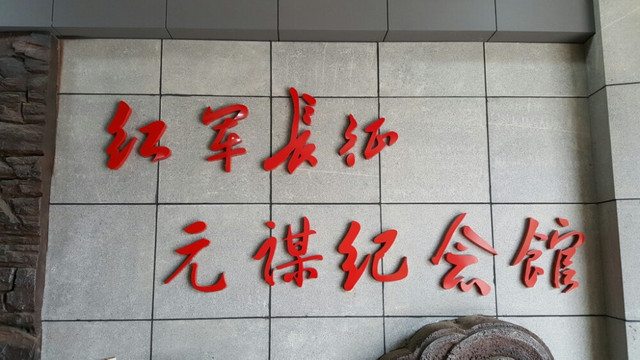 红军長征
元谋纪念馆